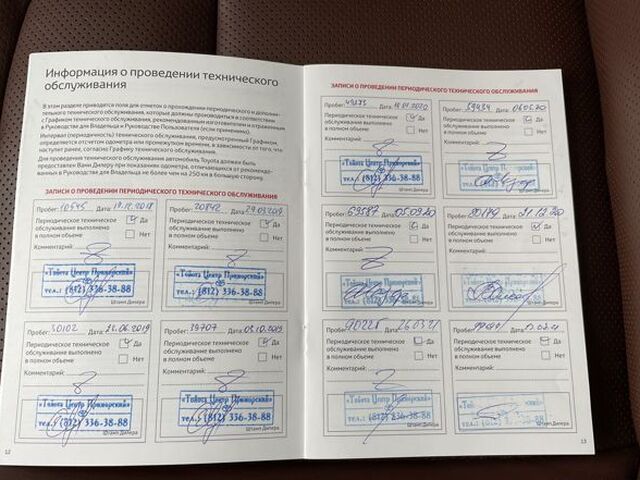 Информация о проведении технического
обслуживания
В этом разделе приводятся поля для отметок о прохождении периодического и дополни-
тельного технического обслуживания, которые должны производиться в соответствии
с Графиком технического обслуживания, рекомендованным изготовителем и отраженным
в Руководстве для Владельца и Руководстве Пользователя (если применимо).
Интервал (периодичность) технического обслуживания, предусмотренный Графиком,
определяется отсчетом одометра или промежутком времени, в зависимости от того, что
наступит ранее, согласно Графику технического обслуживания.
Для проведения технического обслуживания автомобиль Toyota должен быть
предоставлен Вами Дилеру при показаниях одометра, отличающихся от рекомендо-
ванных в Руководстве для Владельца не более чем на 250 км в большую сторону.
ЗАПИСИ О ПРОВЕДЕНИИ ПЕРИОДИЧЕСКОГО ТЕХНИЧЕСКОГО ОБСЛУЖИВАНИЯ
Пробег: 10545 Дата: 19.12.2018
Периодическое техническое
обслуживание выполнено
в полном объеме
Да
Нет
Комментарий:
«Тойота Центр Приморский»
тел.: (812) 336-38-88
Штамп Дилера
Пробег: 20842 Дата: 29.03.2019
Периодическое техническое
обслуживание выполнено
в полном объеме
Да
Нет
Комментарий:
«Тойота Центр Приморский»
тел.: (812) 336-38-88
Штамп Дилера
Пробег: 30102 Дата: 22.06.2019
Периодическое техническое
обслуживание выполнено
в полном объеме
Да
Нет
Комментарий:
«Тойота Центр Приморский»
тел.: (812) 336-38-88
Штамп Дилера
Пробег: 39707 Дата: 03.10.2019
Периодическое техническое
обслуживание выполнено
в полном объеме
Да
Нет
Комментарий:
«Тойота Центр Приморский»
тел.: (812) 336-38-88
Штамп Дилера
12
ЗАПИСИ О ПРОВЕДЕНИИ ПЕРИОДИЧЕСКОГО ТЕХНИЧЕСКОГО ОБСЛУЖИВАНИЯ
Пробег: 49173 Дата: 18.01.2020
Периодическое техническое
обслуживание выполнено
в полном объеме
Да
Нет
Комментарий:
«Тойота Центр Приморский»
тел.: (812) 336-38-88
Штамп Дилера
Пробег: 59434 Дата:
Периодическое техническое
обслуживание выполнено
в полном объеме
Да
Нет
Комментарий:
Штамп Дилера
Пробег: 69587 Дата: 05.09.20
Периодическое техническое
обслуживание выполнено
в полном объеме
Да
Нет
Комментарий:
Штамп Дилера
Пробег: Дата: 21.12.20
Периодическое техническое
обслуживание выполнено
в полном объеме
Да
Нет
Комментарий:
Штамп Дилера
Пробег: 90225 Дата: 26.03.21
Периодическое техническое
обслуживание выполнено
в полном объеме
Да
Нет
Комментарий:
«Тойота Центр Приморский»
тел.: (812) 336-38-88
Штамп Дилера
Пробег: Дата:
Периодическое техническое
обслуживание выполнено
в полном объеме
Да
Нет
Комментарий:
тел.: (812) 336-38-88
Штамп Дилера
13